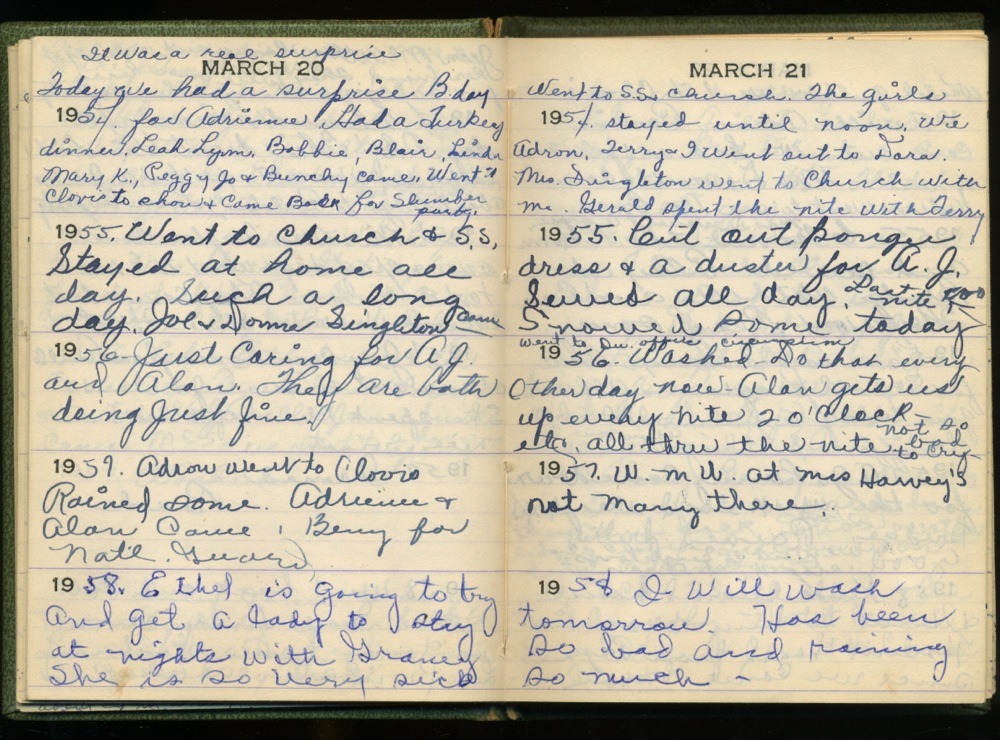 It was a real surprise
MARCH 20
Today we had a surprise B day
1954. for Adrienne Had a Turkey
dinner. Leah Lynn, Bobbie, Blair, Linda
Mary K., Peggy Jo & Bunchy came. Went
Clovis to show & Came Back for Slumber
party.
1955. Went to Church & S.S.
Stayed at home all
day. Such a long
day. Joe & Donna Singleton came
1956 - Just Caring for A J
and Alan. They are both
doing Just fine.
1957. Adron went to Clovis
Rained some. Adrienne &
Alan Came. Benny for
Natl. Guard
1958. Ethel is going to try
and get a lady to stay
at nights with Graney
She is so very sick
MARCH 21
Went to S.S. & church. The girls
1954. stayed until noon. We
Adron, Terry & I went out to Dora.
Mrs. Singleton went to Church with
me. Gerald spent the nite with Terry
1955. Cut out pongee
dress & a duster for A. J.
Sewed all day. Last nite too
Snowed Some today
went to Dr. office circumcism
1956. Washed Do that every
Other day now - Alan gets us
up every nite 2 O'Clock -
etc. all thru the nite not so bad to cry -
1957. W. M. U. at Mrs Harvey's
not Many there.
1958 I Will Wash
tomorrow. Has been
So bad and raining
so much -